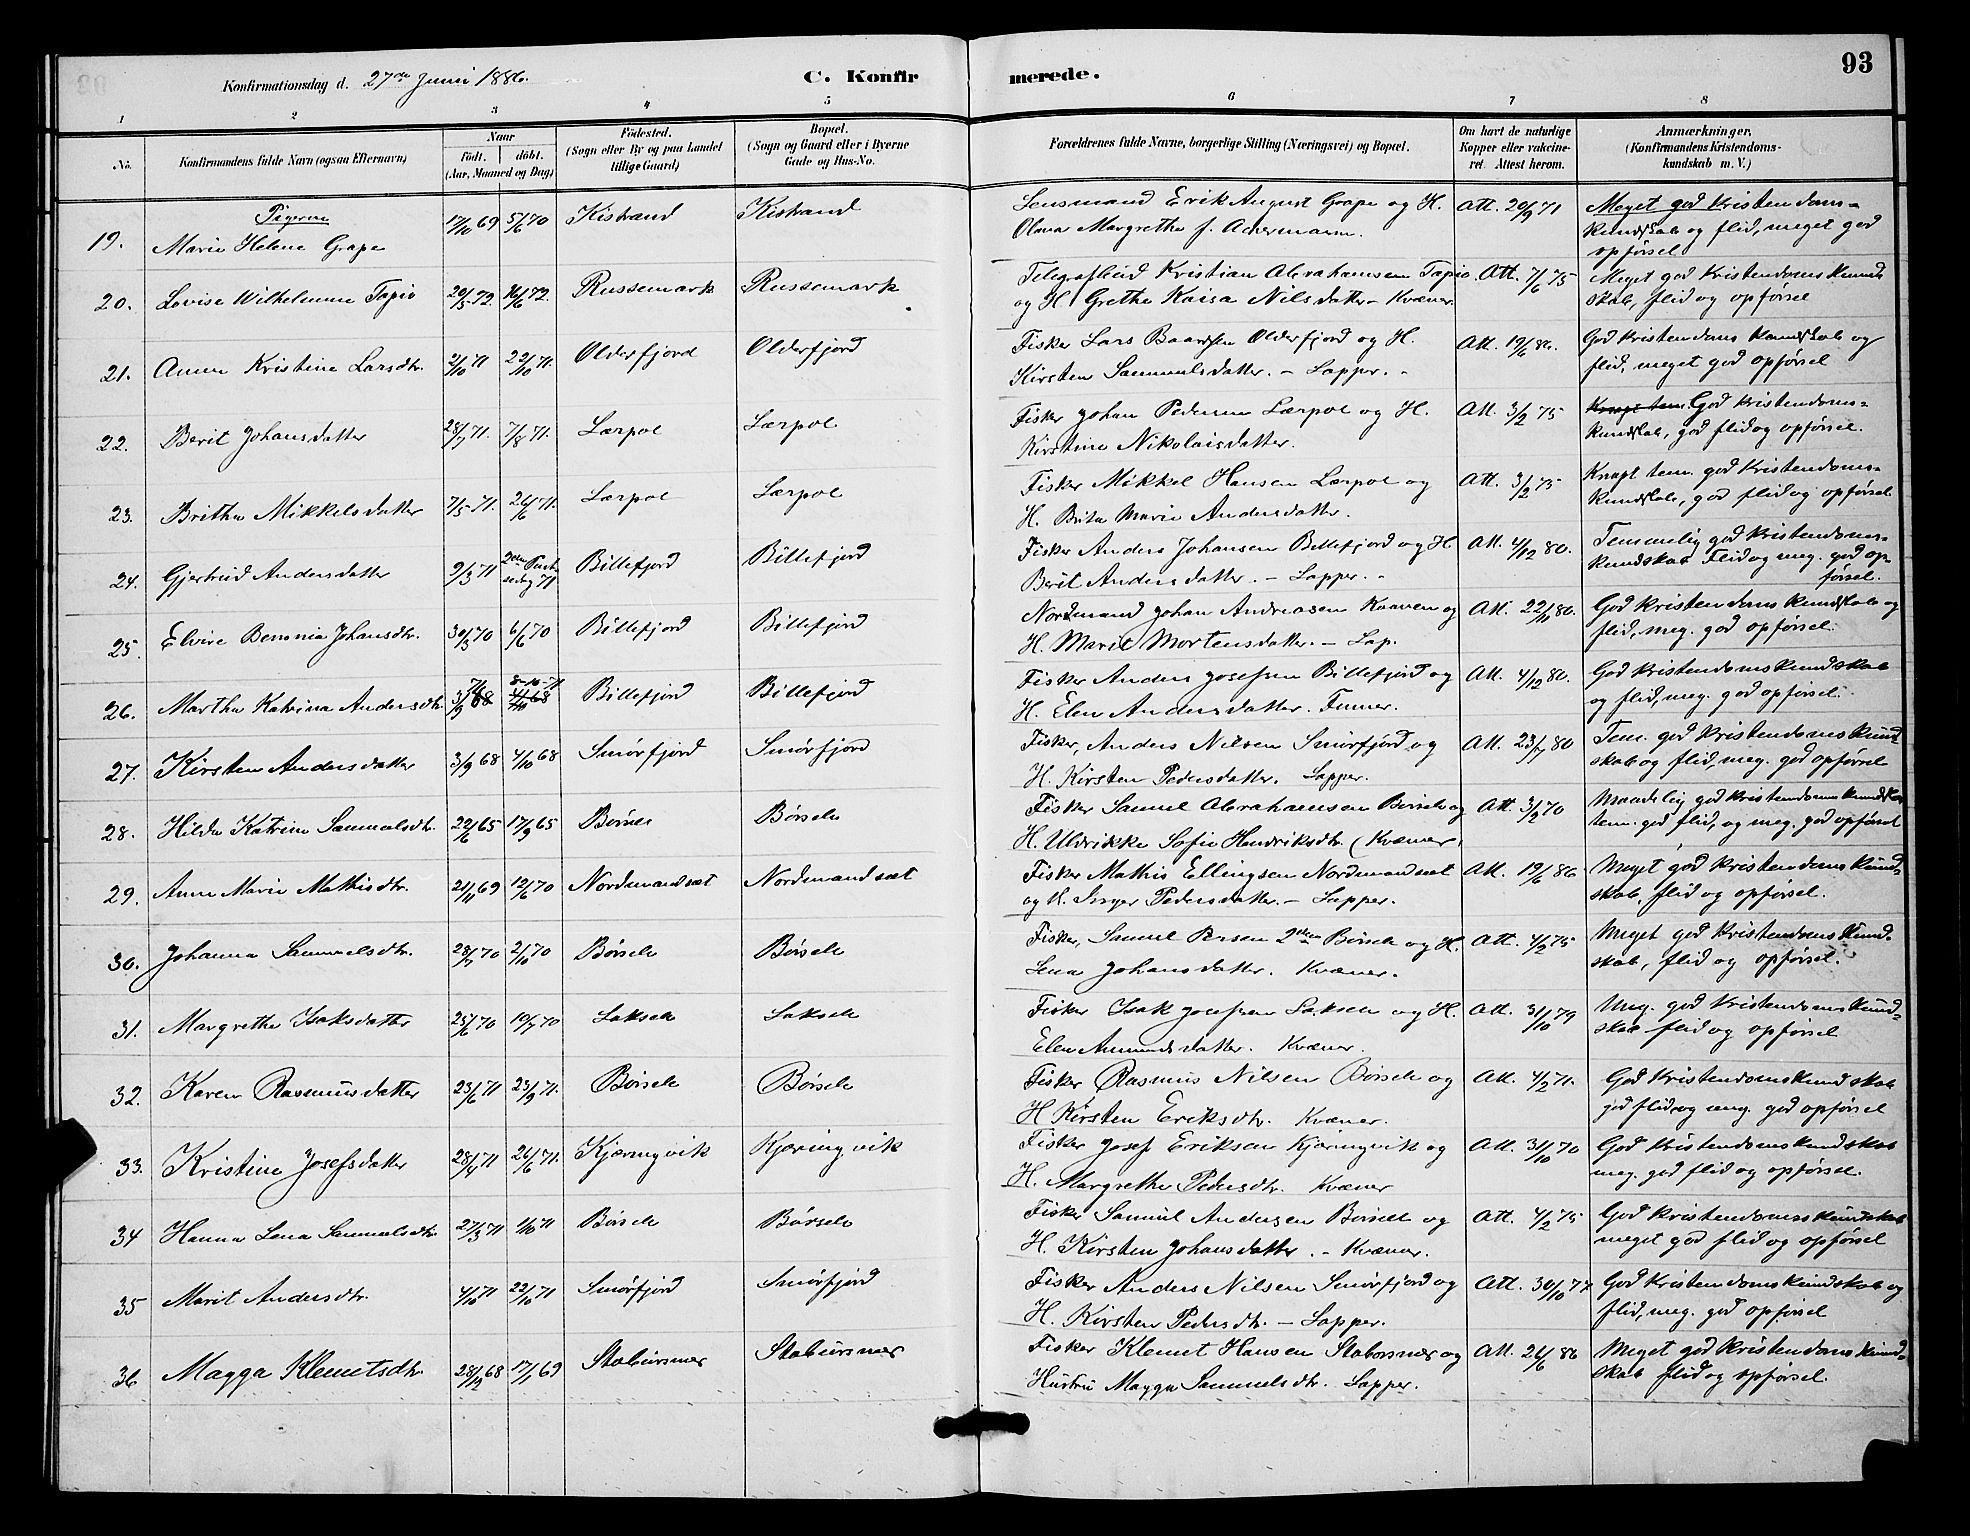 Konfirmationsdag d. 27de Juni 1886. C. Konfirmerede. 93
1 2 3 4 5 6 7 8
No. Konfirmandens fulde Navn (ogsaa Efternavn) Naar födt. döbt. (Aar, Maaned og Dag) Födested. (Sogn eller By og paa Landet tillige Gaard) Bopæl. (Sogn og Gaard eller i Byerne Gade og Hus-No. Forældrenes fulde Navne, borgerlige Stilling (Næringsvei) og Bopæl. Om havt de naturlige Kopper eller vakcineret. Attest herom. Anmærkninger. (Konfirmandens Kristendomskundskab m. V.)
Pigerne
19. Marie Helene Grape 17/10 69 5/6 70 Kistrand Kistrand Lensmand Erik August Grape og H. Att. 20/9 71 Meget god Kristendoms-
Olava Margrethe f. Ackermann. kundskab og flid, meget god
opførsel
20. Lovise Wilhelmine Tapio 20/5 72 16/6 72. Russemark Russemark Telegrafbud Kristian Abrahamsen Tapio Att. 7/6 75 Meget god Kristendomskund-
og H. Grethe Kaisa Nilsdatter - Kvæner. skab, flid og opførsel
21. Anne Kristine Larsdtr. 2/10 71 22/10 71. Olderfjord Olderfjord Fisker Lars Baardsen Olderfjord og H. Att. 19/6 86. God Kristendomskundskab og
Kirsten Samuelsdatter. - Lapper. - flid, meget god opførsel
22. Berit Johansdatter 28/7 71. 7/8 71. Lærpol Lærpol Fisker Johan Pedersen Lærpol og H. Att. 3/2 75 Knapt tem. God Kristendoms-
Kirstine Nikolaisdatter. kundskab, god flid og opførsel.
23. Britha Mikkelsdatter 7/5 71. 26/6 71. Lærpol Lærpol Fisker Mikkel Hansen Lærpol og Att. 3/2 75 Knapt tem. god Kristendoms-
H. Brita Marie Andersdatter. kundskab, god flid og opførsel
24. Gjertrud Andersdatter 9/3 71 2den Pintsedag 71 Billefjord Billefjord Fisker Anders Johansen Billefjord og H. Att. 4/12 80. Temmelig god Kristendoms-
Berit Andersdatter. - Lapper. - kundskab Flid og meg. god op-
førsel.
25. Elvire Bennnia Johansdtr. 30/3 70 6/6 70 Billefjord Billefjord Nordmand Johan Andreasen Kaaven og Att. 22/11 80. God Kristendomskundskab og
H. Marit Mortensdatter. - Lap. flid, meg. god opførsel.
26. Martha Katrina Andersdtr. 3/9 68 71 4/10 68 8-10-71 Billefjord Billefjord Fisker Anders Josefsen Billefjord og Att. 4/12 80. God Kristendomskundskab
H. Elen Andersdatter. Finner. og flid, meg. god opførsel.
27. Kirsten Andersdatter 3/9 68 4/10 68 Smörfjord Smörfjord Fisker, Anders Nilsen Smörfjord og Att. 23/7 80 Tem. god Kristendomskund-
H. Kirsten Pedersdatter. Lapper. skab og flid, meg. god opførsel
28. Hilda Katrine Samuelsdtr. 22/6 65 17/9 65 Börselv Börselv Fisker Samuel Abrahamsen Börselv og Att. 3/2 70 Maadelig god Kristendomskundskab
H. Uldrikke Sofie Hendriksdtr. (Kvæner. tem. god flid, og meg. god opførsel
29. Anne Marie Mathisdtr. 21/11 69 12/6 70 Nordmandsæt Nordmandsæt Fisker Mathis Ellingsen Nordmandsæt Att. 19/6 86. Meget god Kristendomskund-
og H. Inger Pedersdatter. - Lapper. skab, flid og opførsel.
30. Johanna Samuelsdtr. 28/7 70 2/10 70 Börselv Börselv Fisker, Samuel Persen 2den Börselv og H. Att. 4/2 75 Meget god Kristendomskund-
Lena Johansdatter. Kvæner. skab, flid og opførsel.
31. Margrethe Isaksdatter 25/6 70 10/7 70 Lakselv Lakselv Fisker Isak Josefsen Lakselv og H. Att. 31/10 79 Meg. god Kristendomskund-
Elen Amundsdatter. Kvæner. skab flid og opførsel
32. Karen Rasmusdatter 23/6 71 23/9 71. Börselv Börselv Fisker Rasmus Nilsen Börselv og Att. 4/2 71. God Kristendomskundskab
H Kirsten Eriksdtr. Kvæner. god flid og meg. god opførsel
33. Kristine Josefsdatter 28/4 71 26/6 71. Kjæringvik Kjæringvik Fisker Josef Eriksen Kjæringvik og Att. 31/10 70 God Kristendomskundskab
H. Margrethe Pedersdtr. Kvæner meg. god flid og opførsel.
34 Hanna Lena Samuelsdtr. 27/3 71 1/10 71 Börselv Börselv Fisker Samuel Andersen Börselv og Att. 4/2 75 God Kristendomskundskab
H. Kirsten Johansdatter. - Kvæner. meget god flid og opførsel
35 Marit Andersdtr. 4/10 71 22/10 71 Smörfjord Smörfjord Fisker Anders Nilsen Smörfjord og Att. 30/10 77 God Kristendomskundskab og
H. Kirsten Pedersdtr. - Lapper. flid, meg. god opførsel
36 Magga Klemetsdtr. 28/12 68 17/1 69 Stabursnæs Stabursnæs Fisker Klemet Hansen Staborsnæs og Att. 26/6 86 Meget god Kristendomskund-
Hustru Magga Samuelsdtr. Lapper. skab flid og opførsel.